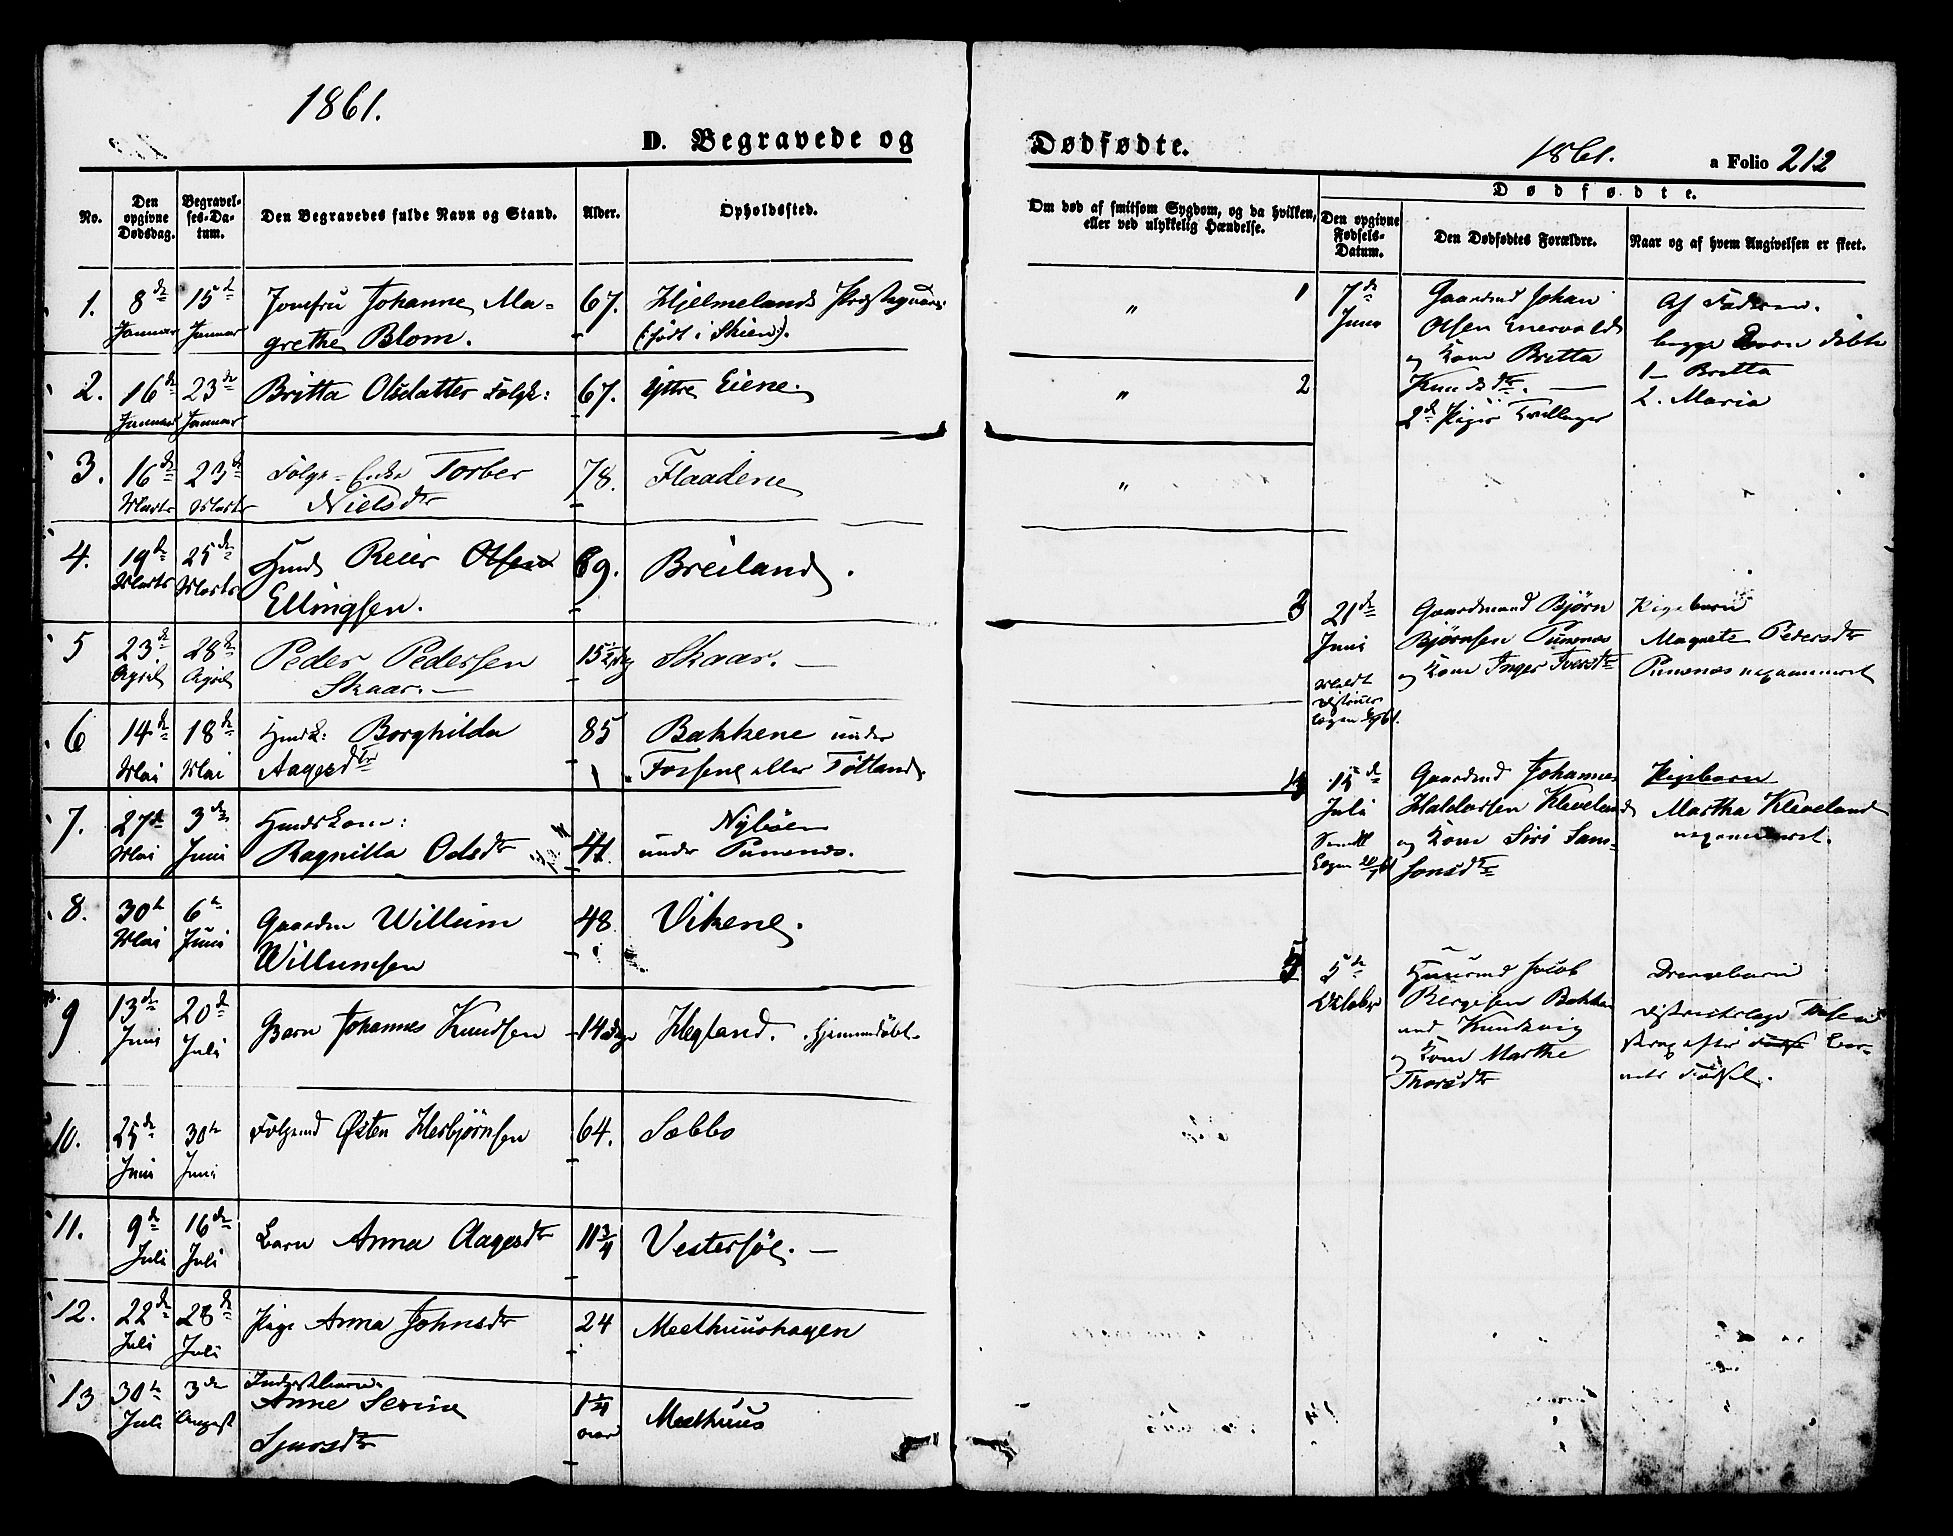 1861.
D. Begravede og
No.
Den opgivne Dødsdag.
Begravelses-Datum.
Den Begravedes fulde Navn og Stand.
Alder.
Opholdssted.
1. 8de Januar 15de Januar Jomfru Johanne Ma-
grethe Blom. 67. Hjelmelands
(født i Skien).
2. 16de Januar 23de Januar Britta Olsdatter 67. Yttre Eiene.
3. 16de Marts 23de Marts Folge-Enke Torber
Nielsdtr 78. Flaadene
4. 19de Marts 25de Marts Reier Olsen
Ellingsen. 69. Breiland.
5 23de April 28de April Peder Pedersen
Skaar. 15 Skaar.
6 14de Mai 18de Mai Borghilda
Aagesdtr 85 Bakkene under
Fossene eller Tøtland.
7. 27de Mai 3die Juni
Ragnilla Odsdtr 41. Nybøen
under Punsnes.
8. 30te Mai 6te Juni Gaardm Willum
Willumsen 48. Vikene.
9 13de Juni 20de Juli Barn Johannes Knudsen 14 Dage Hegland. hjemmedøbt
10. 25de Juni 30te Juni Østen Hesbjørnsen 64. Sæbbø
11. 9de Juli 16de Juli Barn Anna Aagesdtr 11 3/4 Vestersøe.
12. 22de Juli 28de Juli Pige Anna Johnsdtr 24 Meelhuushagen
13 30te Juli 3die August
Anne Serine
Sjursdtr 1 1/4 Aar Meelhuus
Dødfødte.
1861.
a Folio 212
Om død af smitsom Sygdom, og da hvilken,
eller ved ulykkelig Hændelse.
Dødfødte.
Den opgivne Fødsels-Datum.
Den Dødfødtes Forældre.
Naar og af hvem Angivelsen er skeet.
" 1 7de Juni Gaardmd Johan
Olsen
og Kone Britta
Knudsdtr.
2de Piger Tvillinger
Af Faderen.
begge Børn døbte
1 Britta
2. Maria
" 2
"
3 21de Juni Gaardmand Bjørn
Bjørnsen Punsnes
og Kone Inger
Pigebarn
Magrete Pedersdtr
Punsnes
4 15de Juli Gaardmd Johannes
Haldorsen Kleveland
og Kone Siri Sam-
sonsdtr
Pigebarn
Martha Kleveland
5 5te Oktober Huusmd Jacob
Bergesen Bakken
und
og Kone Marthe
Thorsdtr
Drengebarn
strax efter Bar-
nets Fødsel.